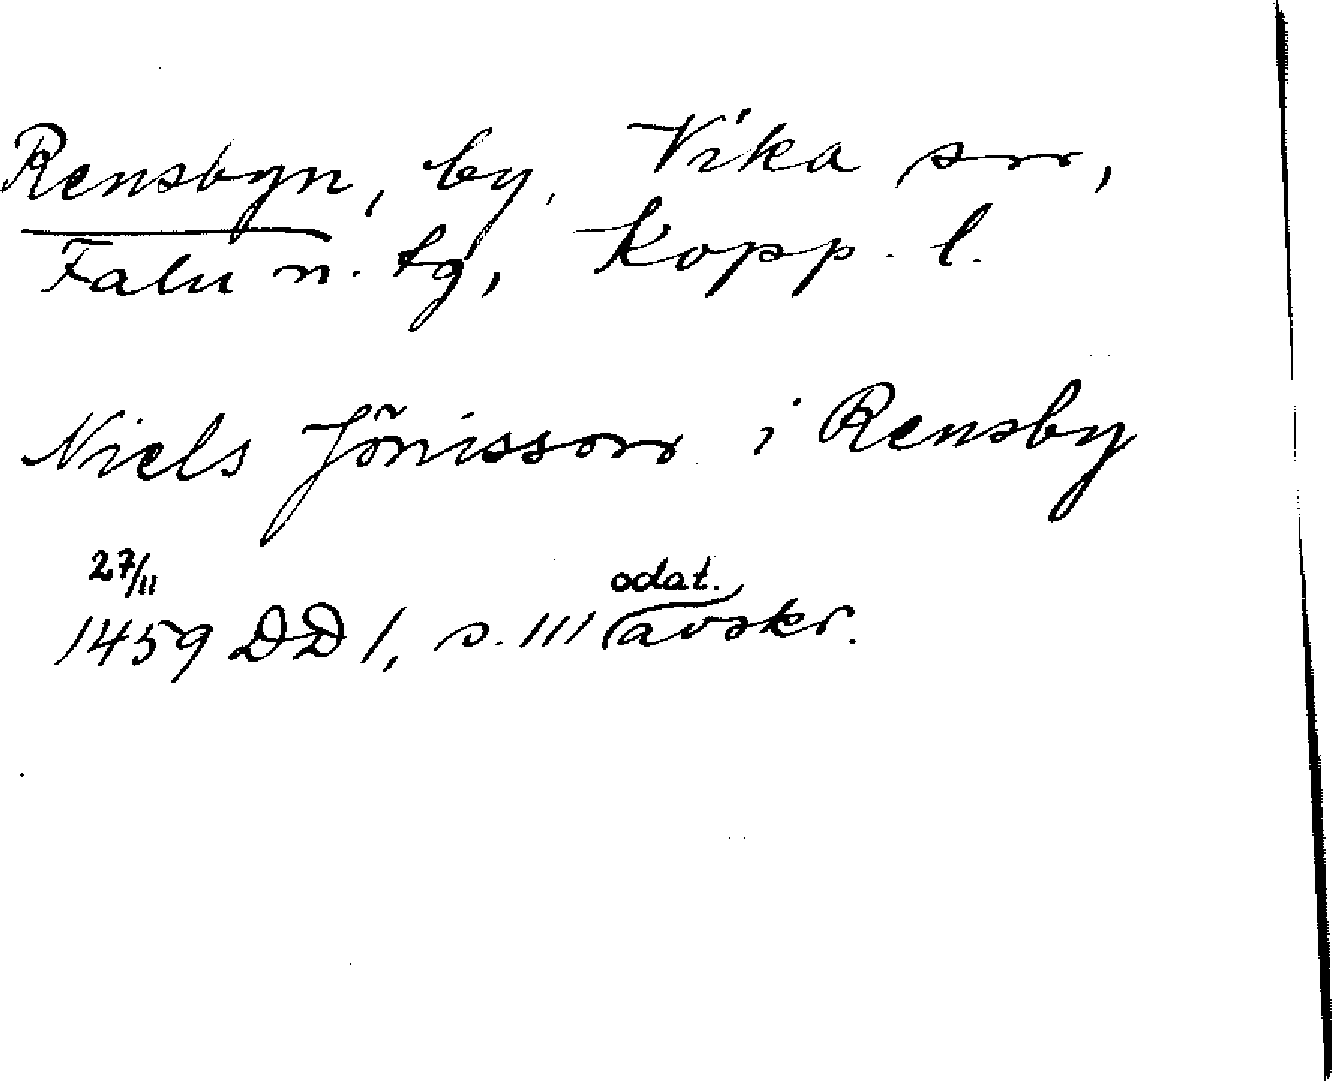 Rensbyn, by, Vika sn,
Falu n. tg, Kopp. l.
Niels Jönisson i Rensby
27/11
odat.
1459 DD 1, s. 111 avskr.